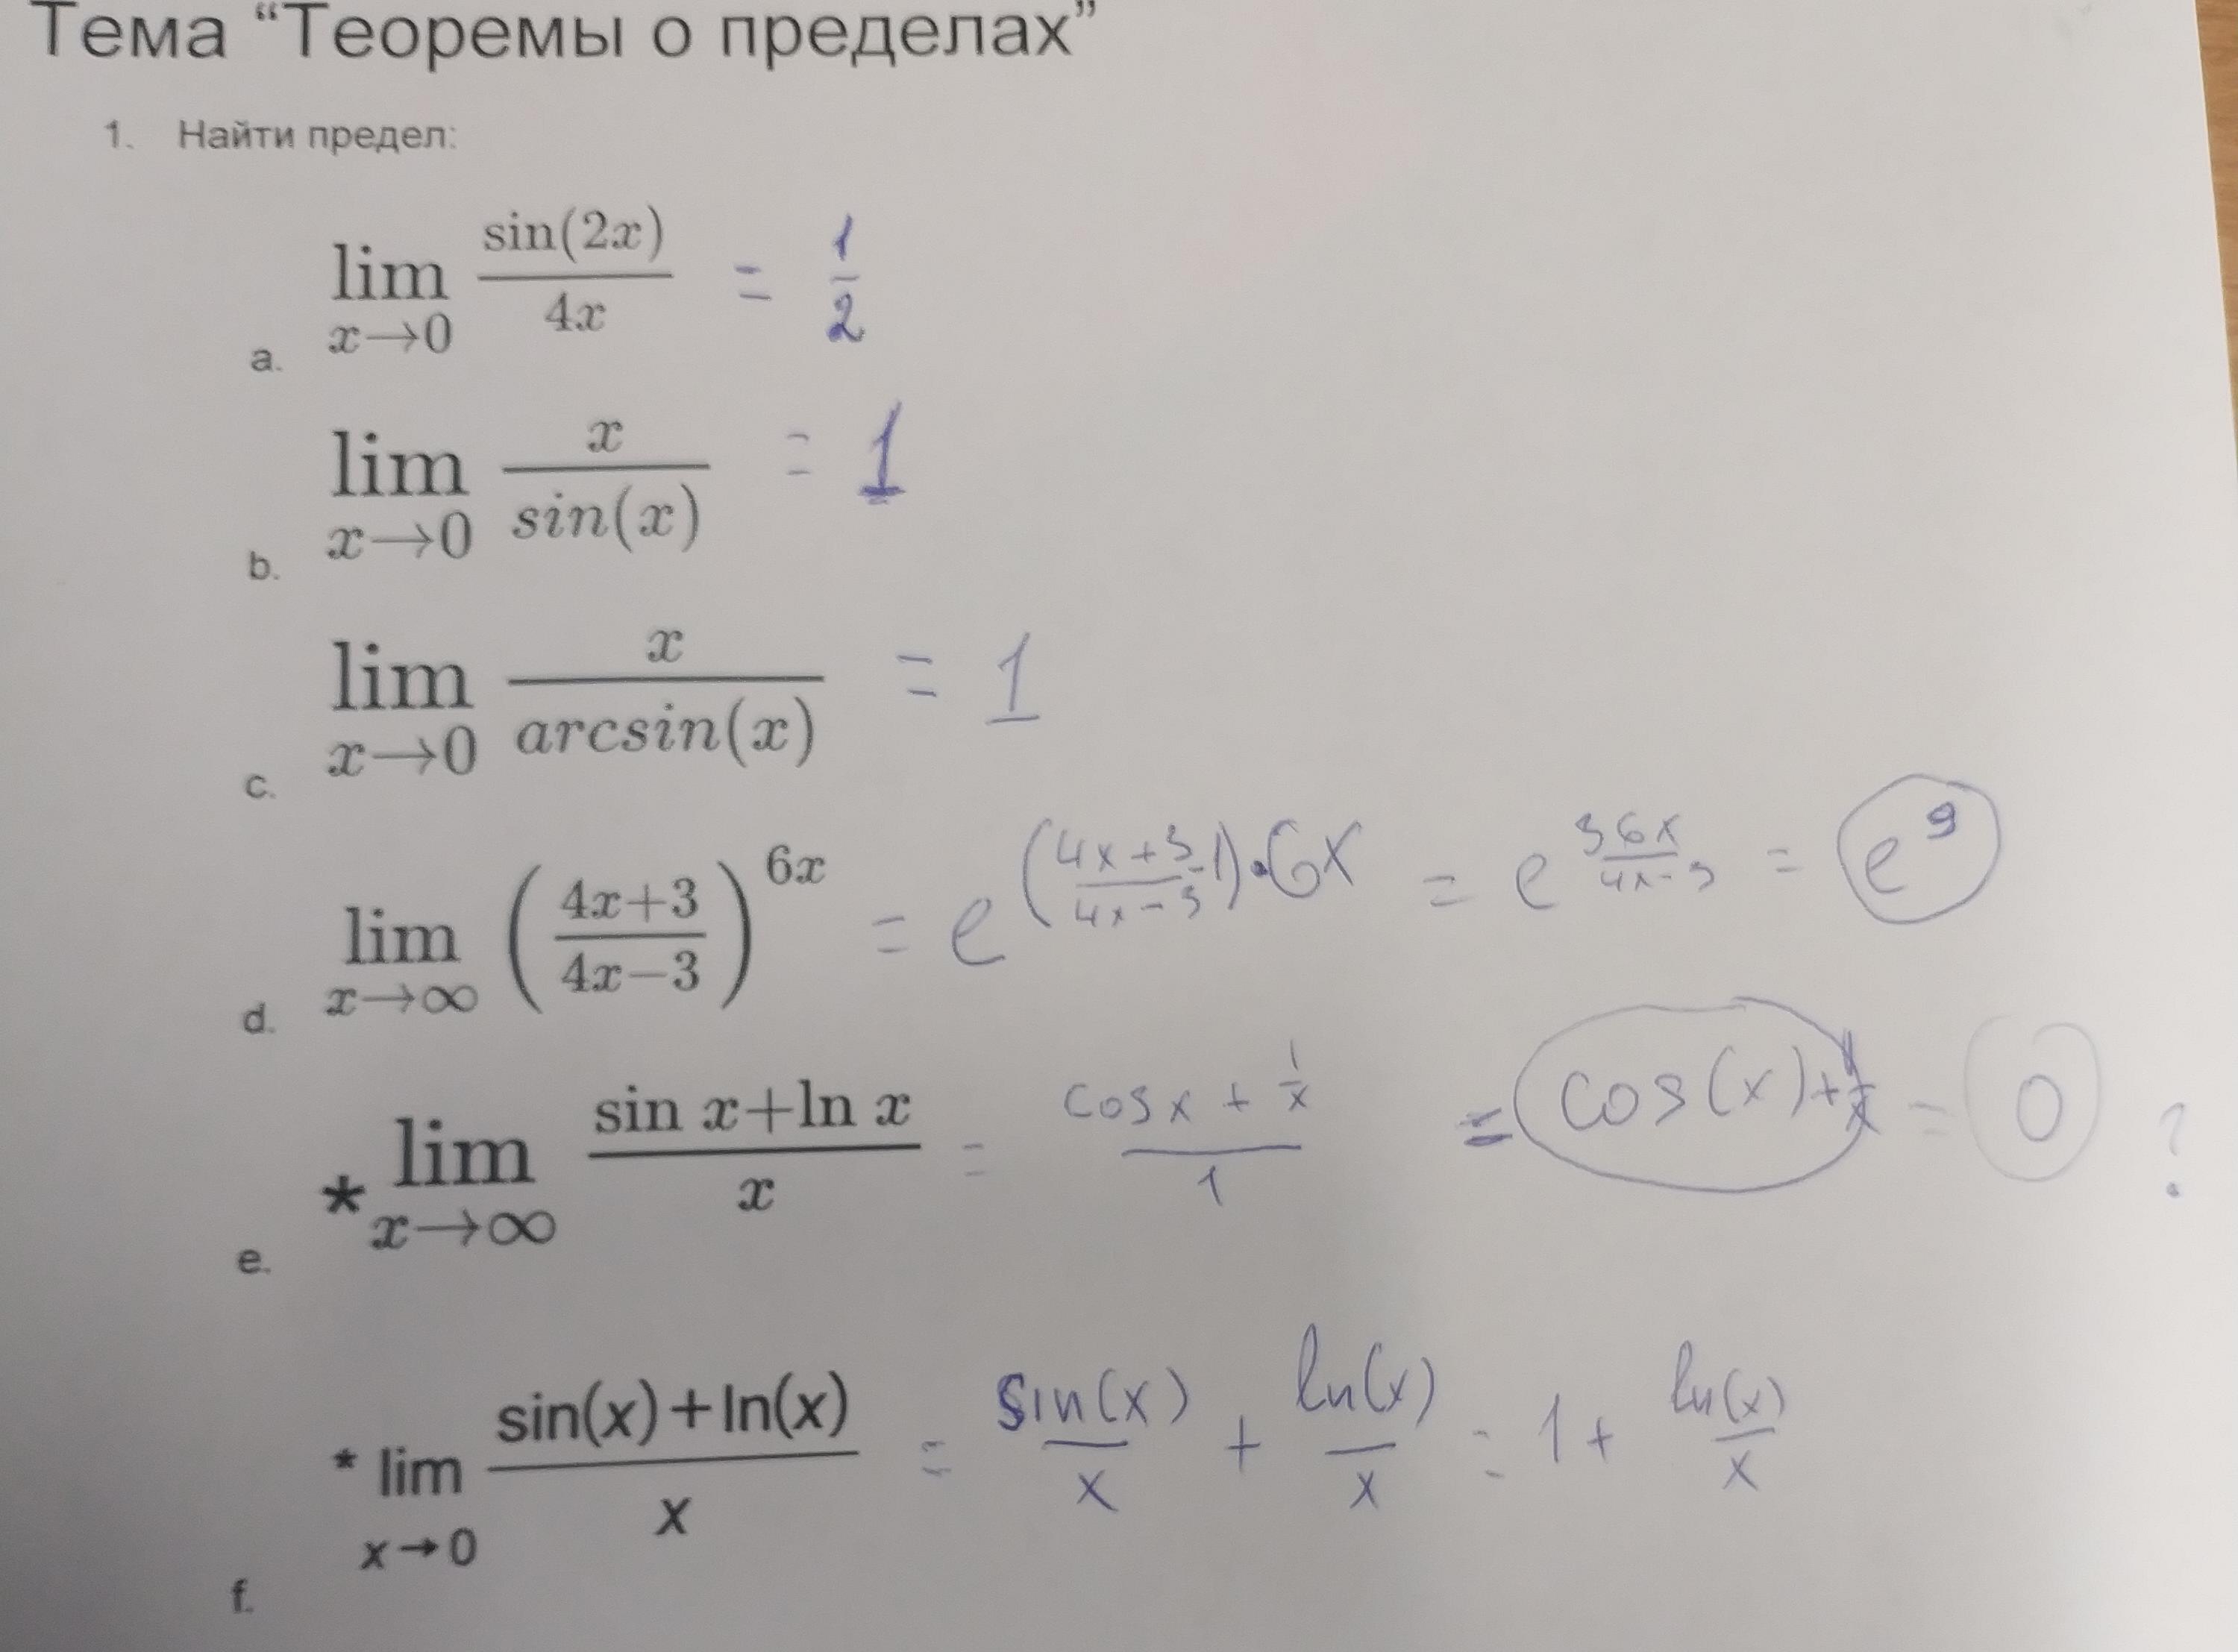 Тема “Теоремы о пределах”
1. Найти предел:
a. lim x→0 sin(2x)/4x = 1/2
b. lim x→0 x/sin(x) = 1
c. lim x→0 x/arcsin(x) = 1
d. lim x→∞ ((4x+3)/(4x−3))^6x = e^((4x+3)/(4x−3) −1)·6x = e^(36x/(4x−3)) = e^9
e. * lim x→∞ (sin x+ln x)/x = (cos x + 1/x)/1 = cos(x)+1/x = 0 ?
f. * lim x→0 (sin(x)+ln(x))/x = sin(x)/x + ln(x)/x = 1 + ln(x)/x